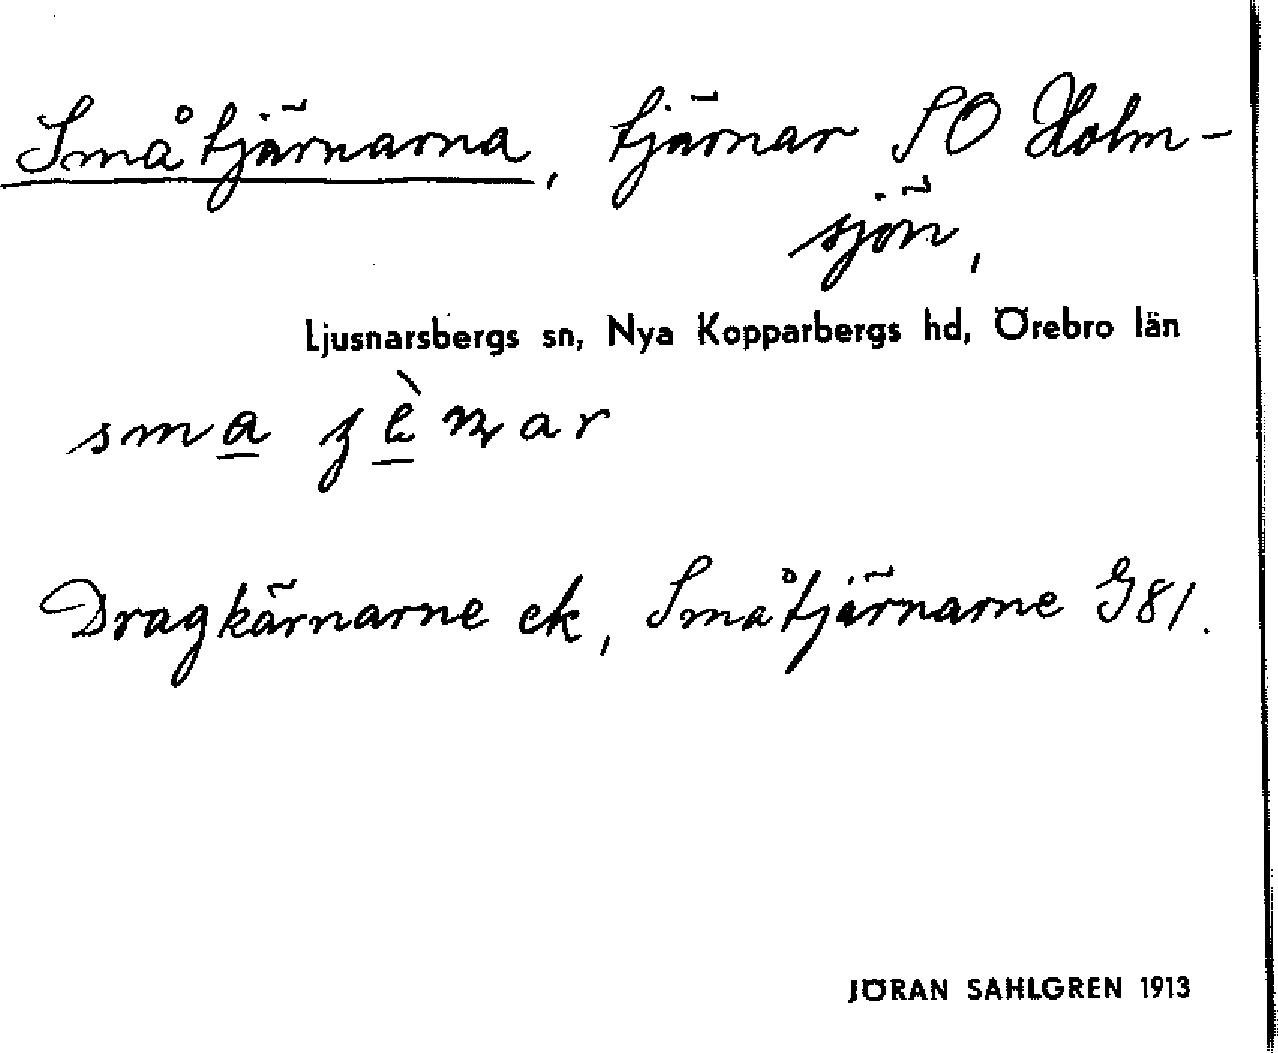 Småtjärnarna, tjärnar SO Holm-
sjön,
Ljusnarsbergs sn, Nya Kopparbergs hd, Örebro län
sma
Dragkärnarne ek, Småtjärnarne G81.
JÖRAN SAHLGREN 1913